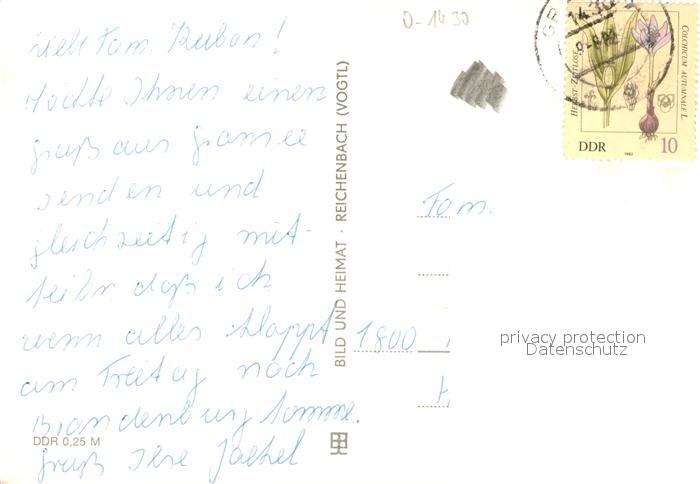 Liebe Fam. Kuban!
Möchte Ihnen einen
gruß aus Gransee
senden und
gleichzeitig mit-
teilen daß ich
wenn alles klappt
am Freitag nach
Brandenburg komme.
Gruß Ilse
DDR 0,25 M
BILD UND HEIMAT · REICHENBACH (VOGTL)
0-1430
HERBST-ZEITLOSE
COLCHICUM AUTUMNALE L.
DDR 10
1982
Fam.
1800
privacy protection
Datenschutz